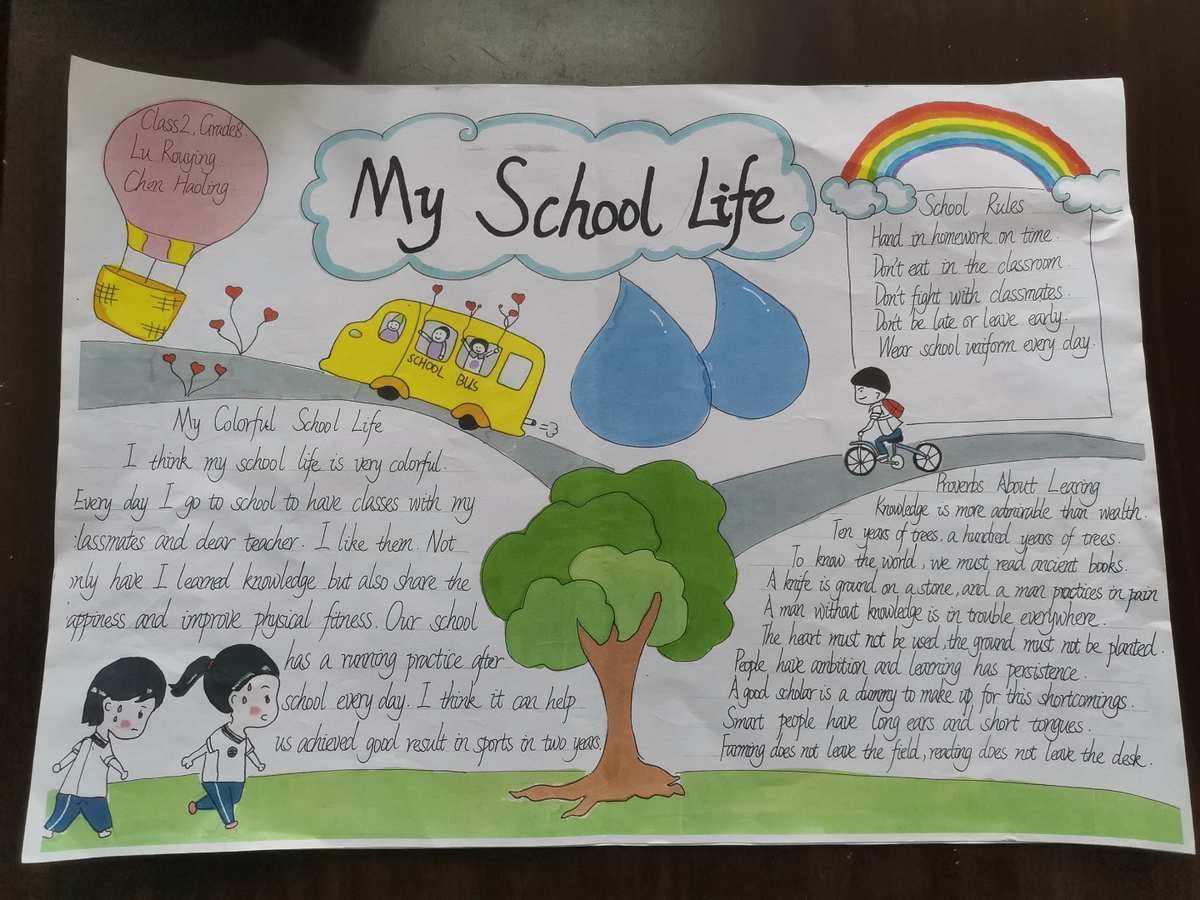 Class2, Grade8
Lu Rouying
Chen Haoling
My School Life
School Rules
Hand in homework on time.
Don't eat in the classroom.
Don't fight with classmates.
Don't be late or leave early.
Wear school uniform every day.
SCHOOL BUS
My Colorful School Life
I think my school life is very colorful.
Every day I go to school to have classes with my
classmates and dear teacher. I like them. Not
only have I learned knowledge but also share the
happiness and improve physical fitness. Our school
has a running practice after
school every day. I think it can help
us achieved good result in sports in two years.
Proverbs About Learing
Knowledge is more admirable than wealth.
Ten years of trees, a hundred years of trees.
To know the world, we must read ancient books.
A knife is ground on a stone, and a man practices in pain
A man without knowledge is in trouble everywhere.
The heart must not be used, the ground must not be planted.
People have ambition and learning has persistence.
A good scholar is a dummy to make up for this shortcomings.
Smart people have long ears and short tongues.
Farming does not leave the field, reading does not leave the desk.